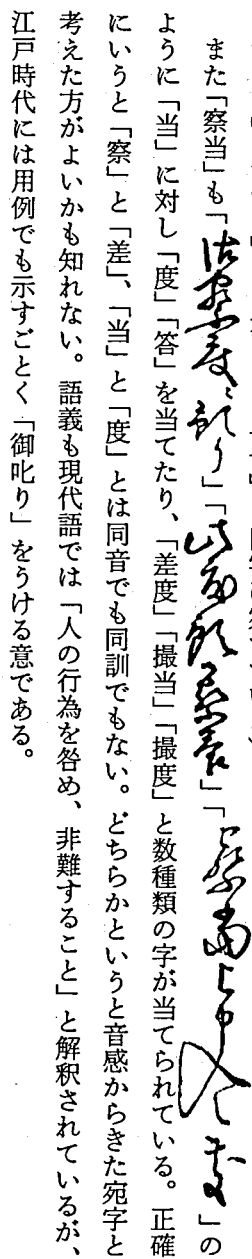 また「察当」も「」「」「」の
ように「当」に対し「度」「答」を当てたり、「差度」「撮当」「撮度」と数種類の字が当てられている。正確
にいうと「察」と「差」、「当」と「度」とは同音でも同訓でもない。どちらかというと音感からきた宛字と
考えた方がよいかも知れない。語義も現代語では「人の行為を咎め、非難すること」と解釈されているが、
江戸時代には用例でも示すごとく「御叱り」をうける意である。